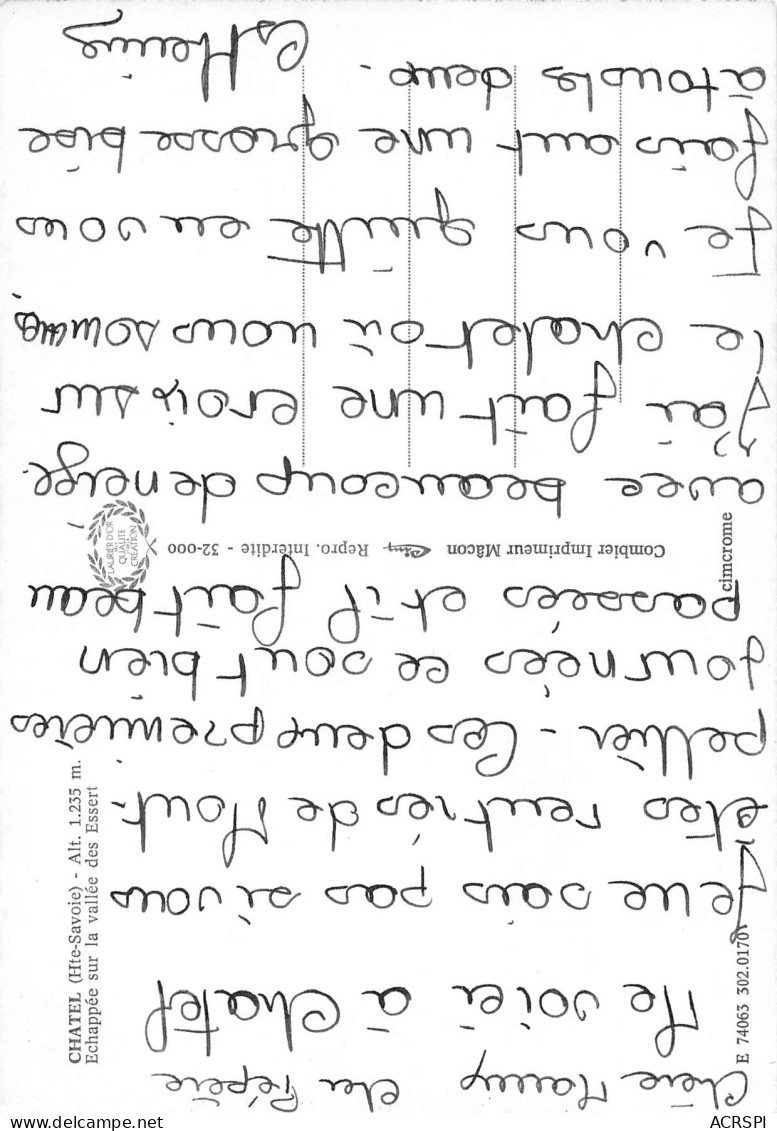 Chère Mamy cher Pépère
Me voici à Chatel
Je ne sais pas si vous
êtes rentrés de Mont-
pellier - Les deux premières
journées ce sont bien
passées et il fait beau
avec beaucoup de neige.
J'ai fait une crois sur
le chalet où nous sommes.
Je vous quitte en vous
fais ant une grosse bise
à tous les deux.
CHATEL (Hte-Savoie) - Alt. 1.235 m.
Echappée sur la vallée des Essert
E 74063 302.0170
cimcrome
Combier Imprimeur Mâcon Repro. Interdite - 32-000
LAURIER D'OR
QUALITÉ
CRÉATION
ACRSPI